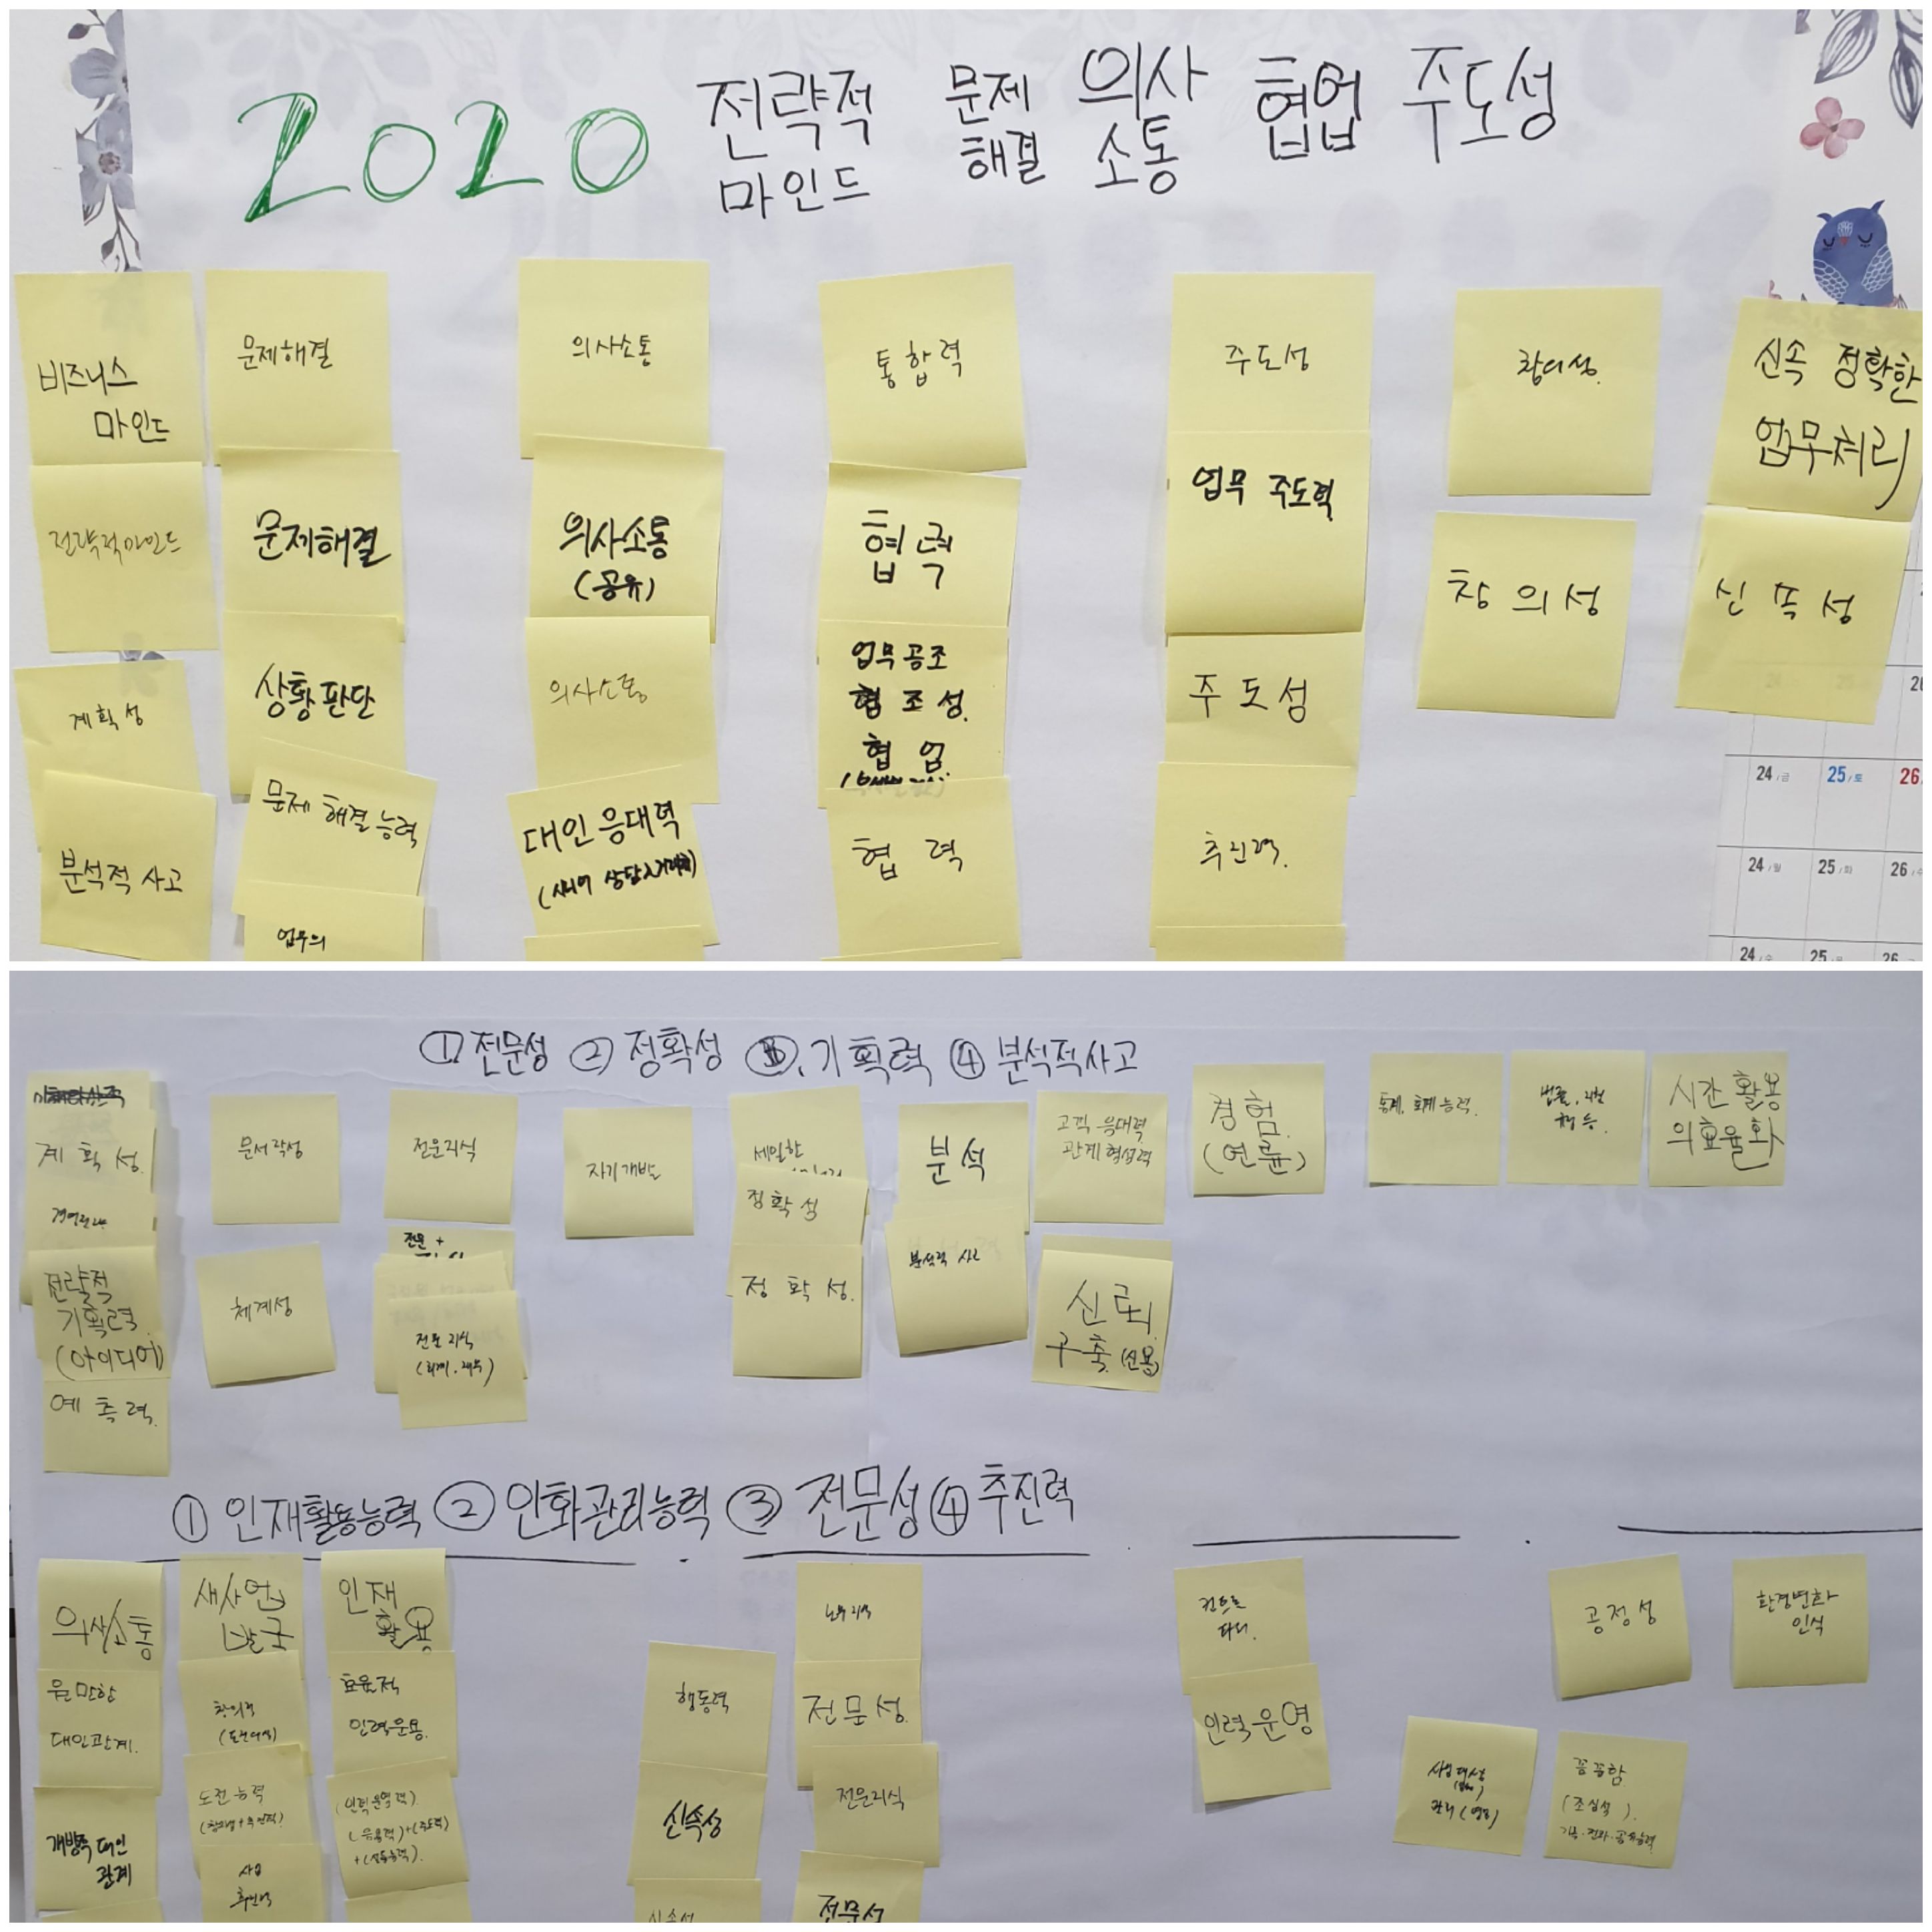 2020 전략적 문제 의사 협업 주도성
마인드 해결 소통
비즈니스
마인드
전략적마인드
계획성
분석적 사고
문제해결
문제해결
상황판단
문제 해결 능력
업무의
의사소통
의사소통
(공유)
의사소통
대인 응대력
통합력
협력
업무공조
협조성.
협업
협력
주도성
업무 주도력
주도성
추진력.
창의성.
창의성
신속 정확한
업무처리
신속성
24/금 25/토 26
24/월 25/화 26/수
24/수 25 26
① 전문성 ② 정확성 ③. 기획력 ④ 분석적사고
계획성.
전략적
기획력.
(아이디어)
예측력.
문서작성
체계성
전문지식
전문+
전문지식
(회계.재무)
자기개발
세밀한
정확성
정확성.
분석
분석적 사고
고객 응대력
관계형성력
신뢰
구축.(신용)
경험.
(연륜)
통계, 회계능력.
시간활용
의효율화
① 인재활용능력 ② 인화관리능력 ③ 전문성 ④ 추진력
의사소통
원만한
대인관계.
개방적 대인
관계
새사업
발굴
창의적
도전능력
사업
추진력
인재
활용
효율적
인력운용.
(인력운영력).
행동력
신속성
신속성
노무지식
전문성.
전문지식
전문성
컨트롤
타워.
인력운영
공정성
환경변화
인식
꼼꼼함.
(조심성).